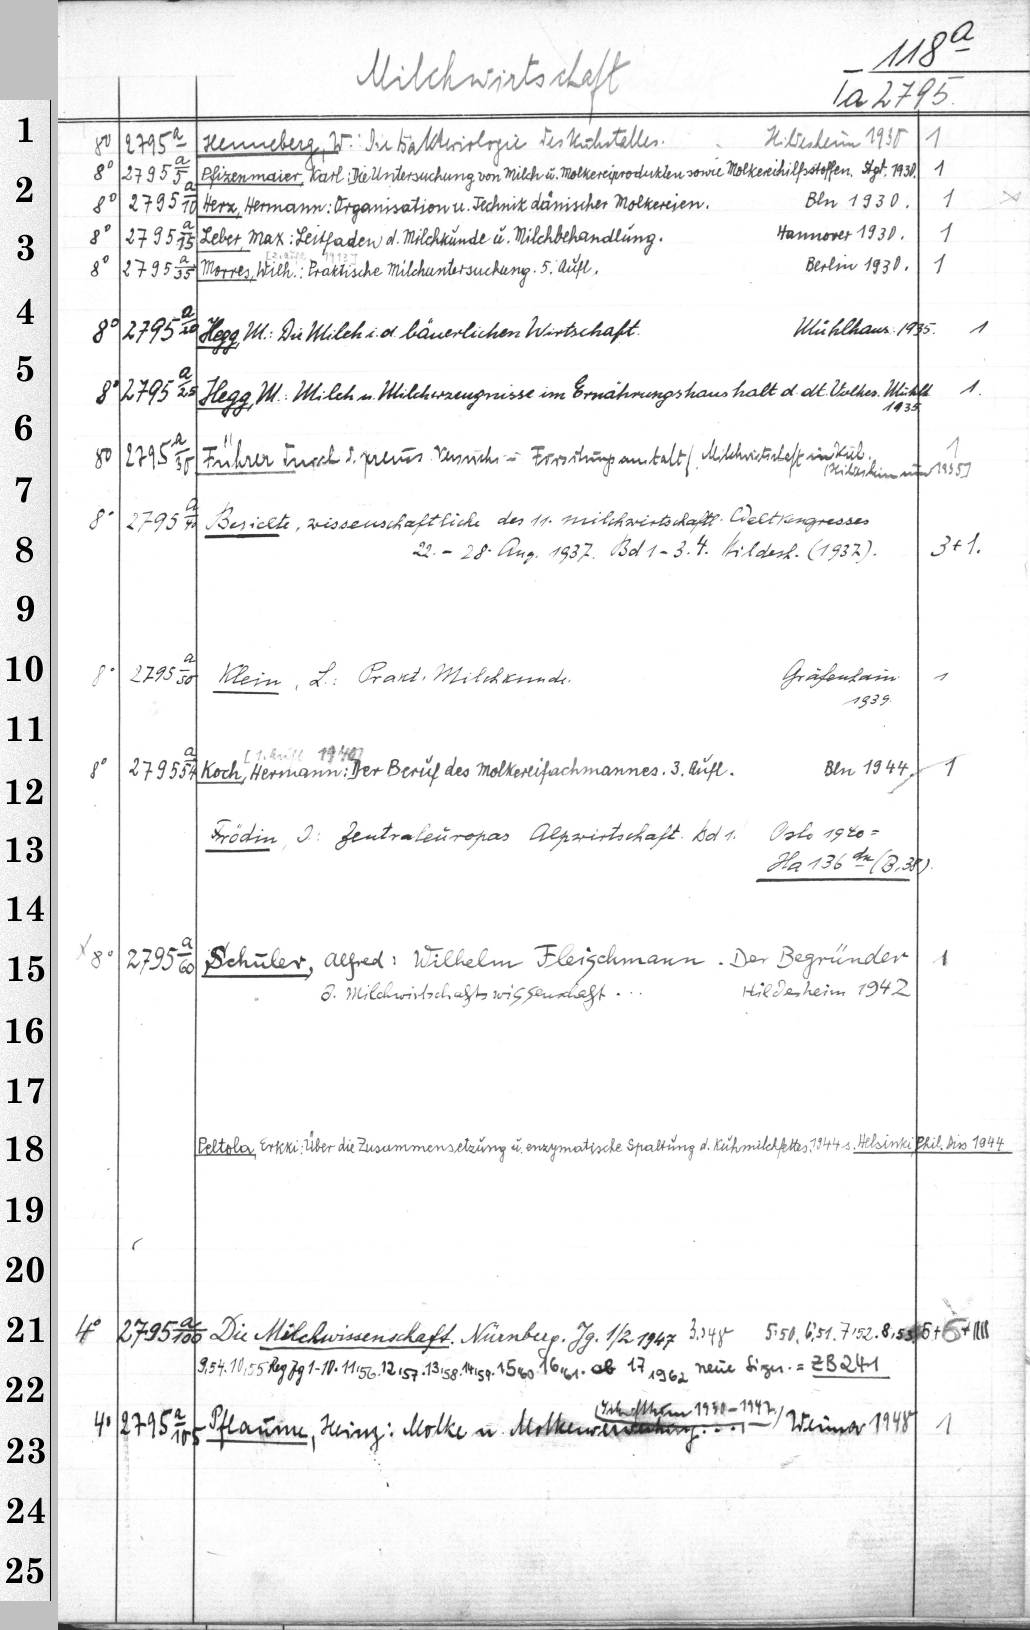 118 a
Milchwirtschaft
Ia 2795.
1
8° 2795 a Henneberg, W.: Die Bakteriologie des Kuhstalles. Hildesheim 1930 1
8° 2795 a/5 Pfizenmaier, Karl: Die Untersuchung von Milch u. Molkereiprodukten sowie Molkereihilfsstoffen. Stgt. 1930. 1
2
8° 2795 a/10 Herz, Hermann: Organisation u. Technik dänischer Molkereien. Bln 1930. 1
3
8° 2795 a/15 Leber, Max: Leitfaden d. Milchkunde u. Milchbehandlung. Hannover 1930. 1
8° 2795 a/35 Morres, Wilh.: Praktische Milchuntersuchung. 5. Aufl. Berlin 1930. 1
4
8° 2795 a/20 Hegg, M.: Die Milch i. d. bäuerlichen Wirtschaft. Mühlhaus. 1935. 1
5
8° 2795 a/25 Hegg, M.: Milch u. Milcherzeugnisse im Ernährungshaushalt d. dt. Volkes. Mühlh 1.
1935.
6
8° 2795 a/30 Führer durch d. preuss. Versuchs- u. Forschungsanstalt f. Milchwirtschaft in Kiel. 1
(Hildesheim 1935]
7
8° 2795 a Berichte, wissenschaftliche des 11. milchwirtschaftl. Weltkongresses
8
22. - 28. Aug. 1937. Bd 1 - 3. 4. Hildesh. (1937). 3+1.
9
10
8° 2795 a/50 Klein, L.: Prakt. Milchkunde. Gräfenhain 1
1939.
11
[1. Aufl. 1940]
8° 2795 a/54 Koch, Hermann: Der Beruf des Molkereifachmannes. 3. Aufl. Bln 1944 1
12
13
Frödin, J: Zentraleuropas Alpwirtschaft. Bd 1. Oslo 1940 =
Ha 136 dn (B, 38).
14
15
8° 2795 a/60 Schuler, Alfred: Wilhelm Fleischmann. Der Begründer 1
d. Milchwirtschaftswissenschaft ... Hildesheim 1942
16
17
18
Peltola, Erkki: Über die Zusammensetzung u. enzymatische Spaltung d. Kuhmilchfettes. 1944 s. Helsinki, Phil. Diss 1944
19
20
21
4° 2795 a/100 Die Milchwissenschaft. Nürnberg. Jg. 1/2 1947 3,'48 5,'50, 6,'51. 7,'52. 8,'53 5+6+
9,'54. 10,'55 Reg Jg 1-10. 11,'56. 12,'57. 13,'58. 14,'59. 15,'60 16,'61. ab 17, 1962 neue Sign. = ZB 241
22
4° 2795 a/105 Pflaume, Heinz: Molke u. Molkenverwertung... (Schrifttum 1930-1947) Weimar 1948 1
23
24
25